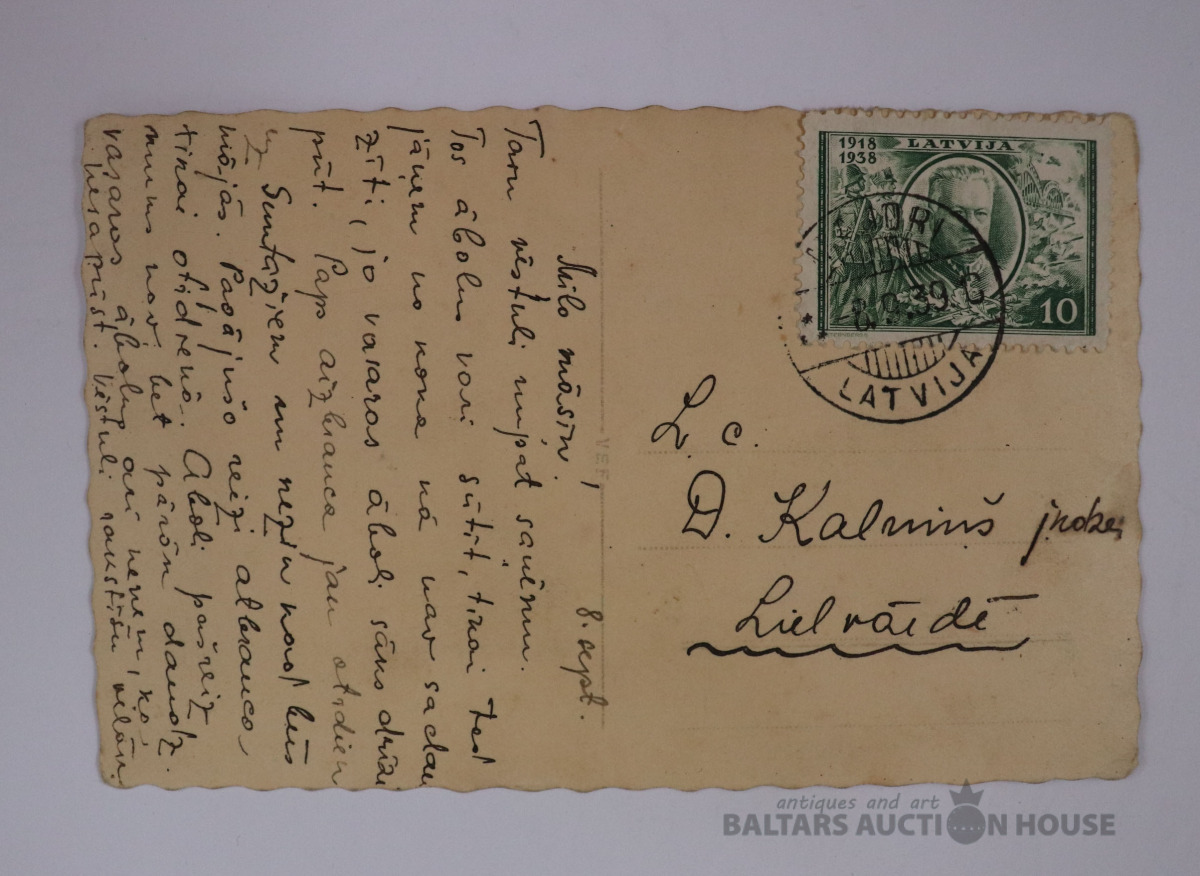 Mīlo māsiņ!
8. sept.
Tavu vēstuli nupat saņēmu.
Tos ābolus vari sūtīt, tikai
jāņem no koka nā nav sadau
zīti, jo vasaras āboli sāks drīzi
pūt. Paps aizbrauca jau otrdien
uz Suntažiem un nezin kad būs
mājās. Pagājušo reizi atbrauca
tikai otrdienā. Āboli pašreiz
mums nav bet pārāk daudz.
vasaras ābolus arī neņem, ka
nesapūst. Vēstuli rakstīšu vēlāk.
1918
1938
LATVIJA
10
LATVIJA
VEF
L. c.
D. Kalniņš
Lielvārdē
antiques and art
BALTARS AUCTION HOUSE